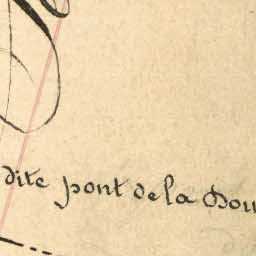 dite pont de la Dou